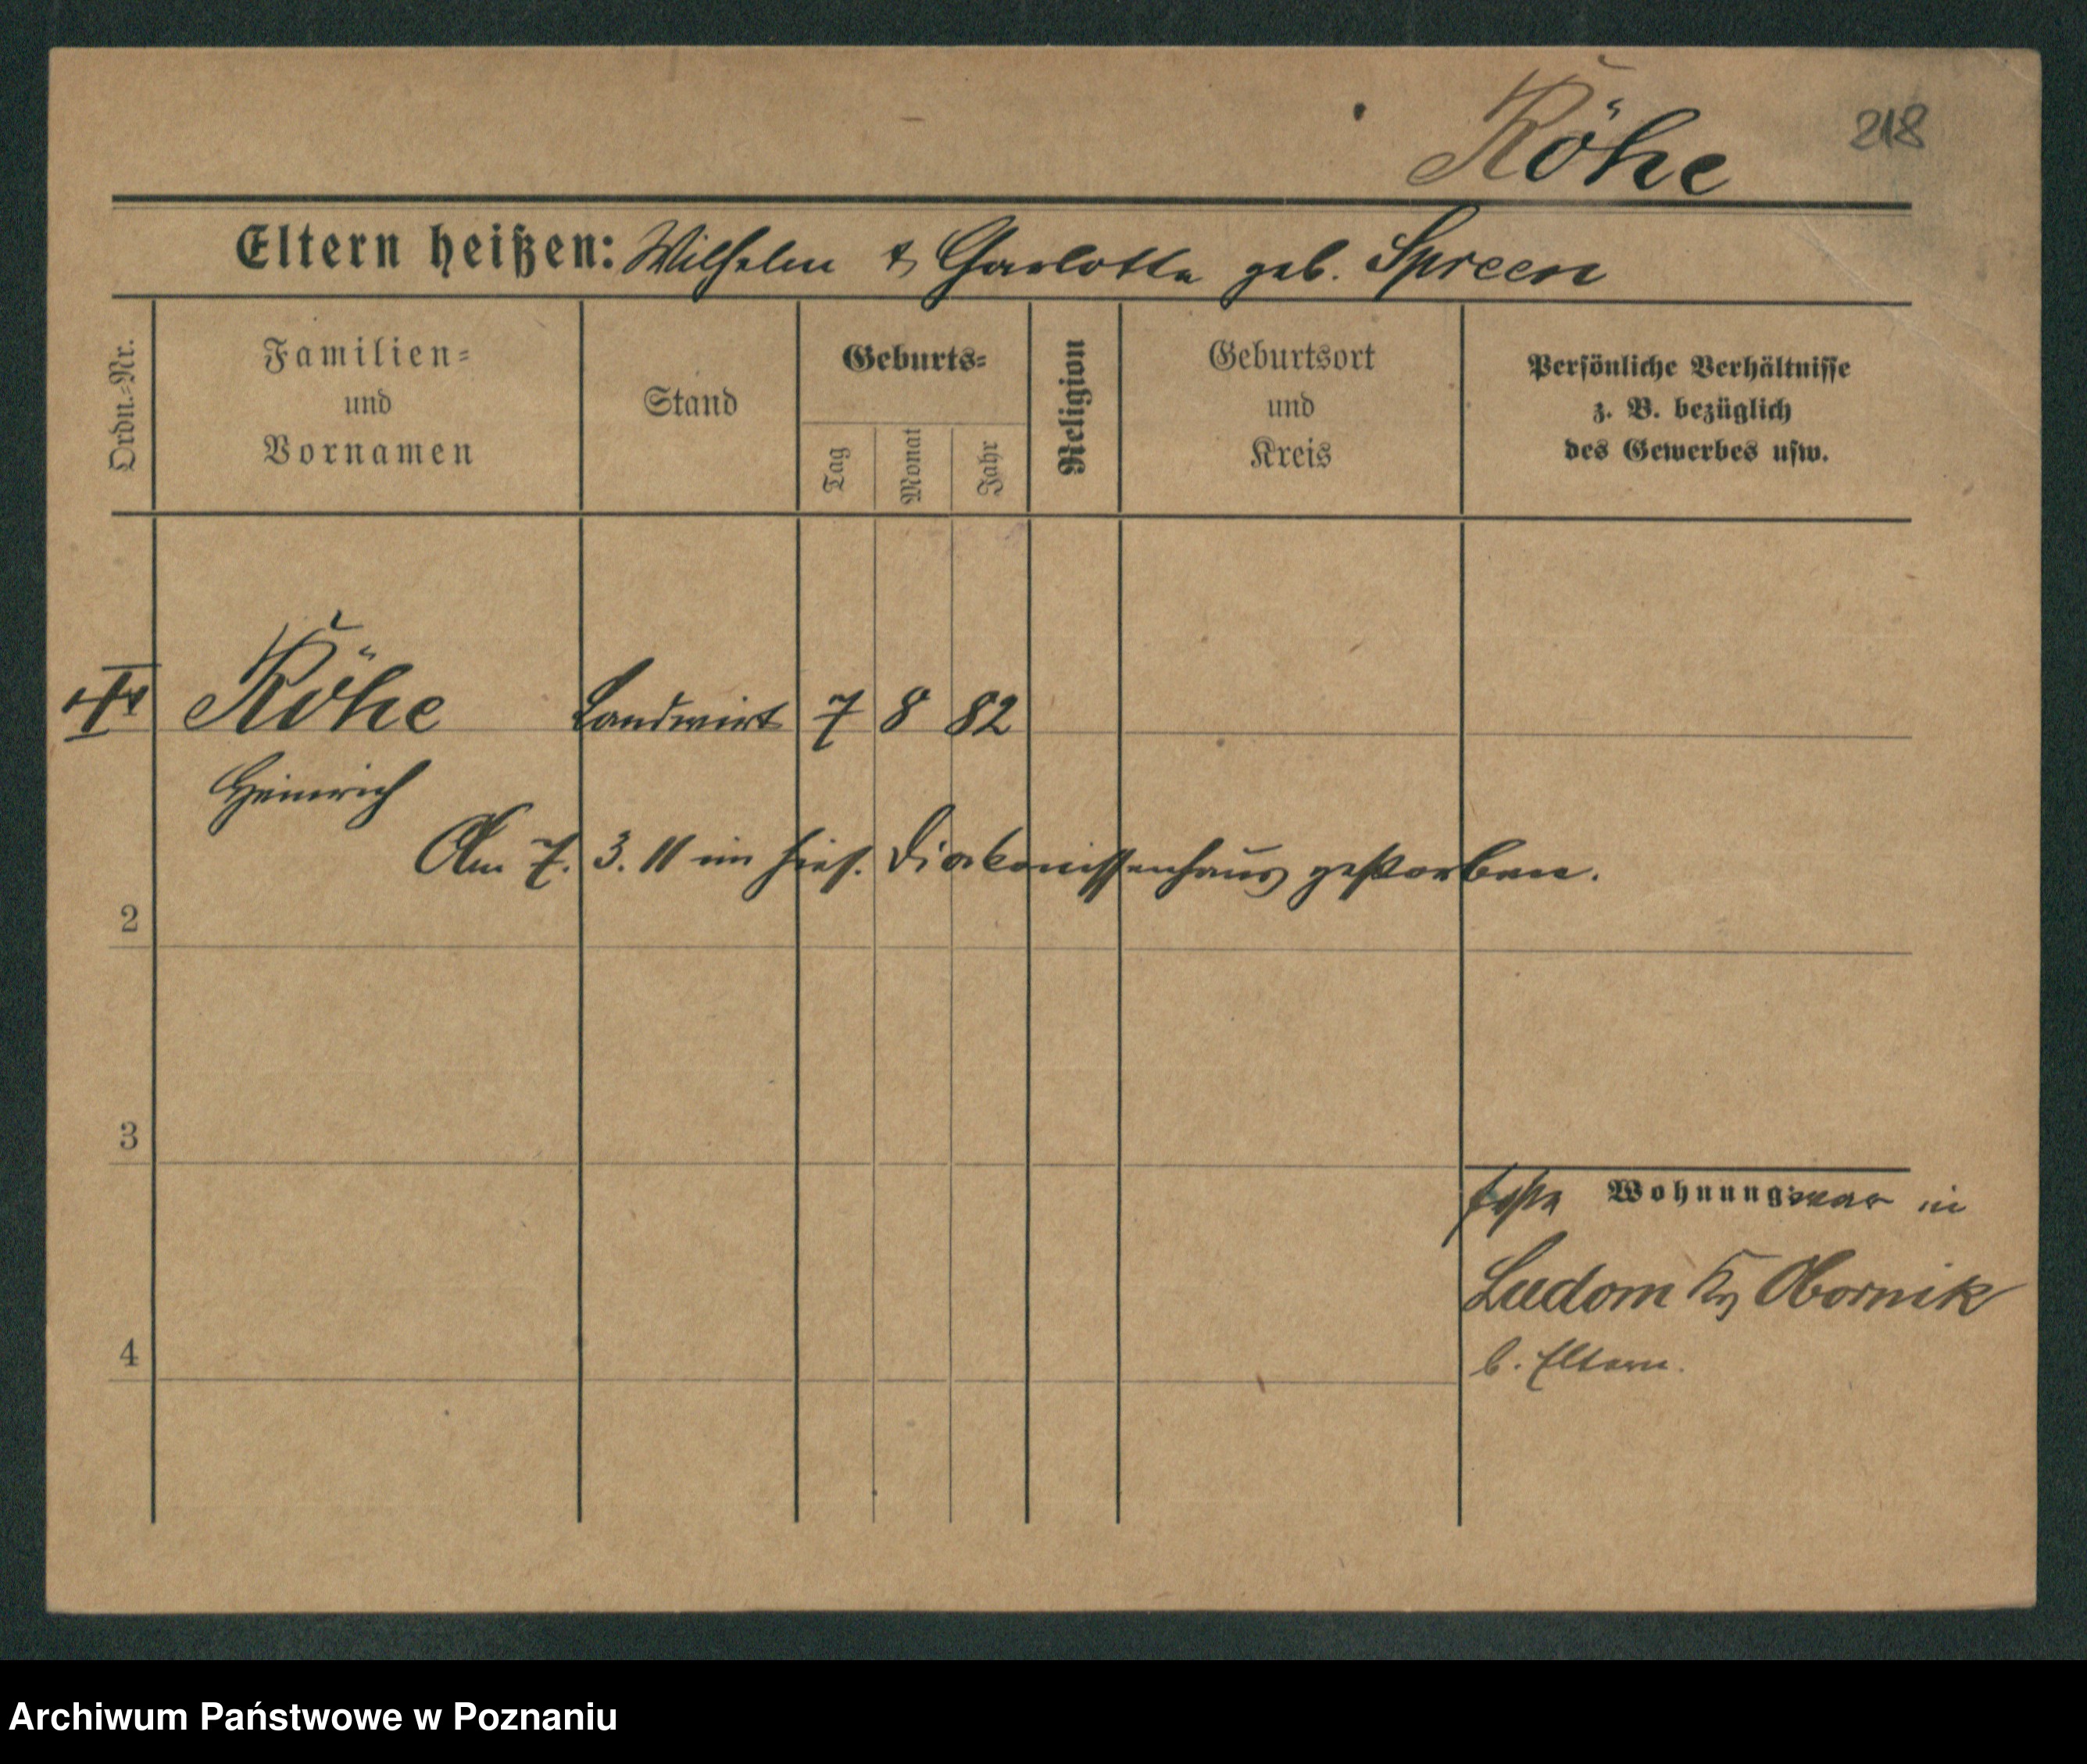 Röhe
218
Eltern heißen: Wilhelm & Charlotte geb. Spreen
Ordn.-Nr.
Familien- und Vornamen
Stand
Geburts-
Tag
Monat
Jahr
Religion
Geburtsort und Kreis
Persönliche Verhältnisse
z. B. bezüglich
des Gewerbes usw.
Röhe Landwirt 7 8 82
Heinrich
Am 7. 3. 11 im hies. Diakonissenhaus gestorben.
2
3
Wohnung war in
Ludom Kr Obornik
4
b. Eltern.
Archiwum Państwowe w Poznaniu